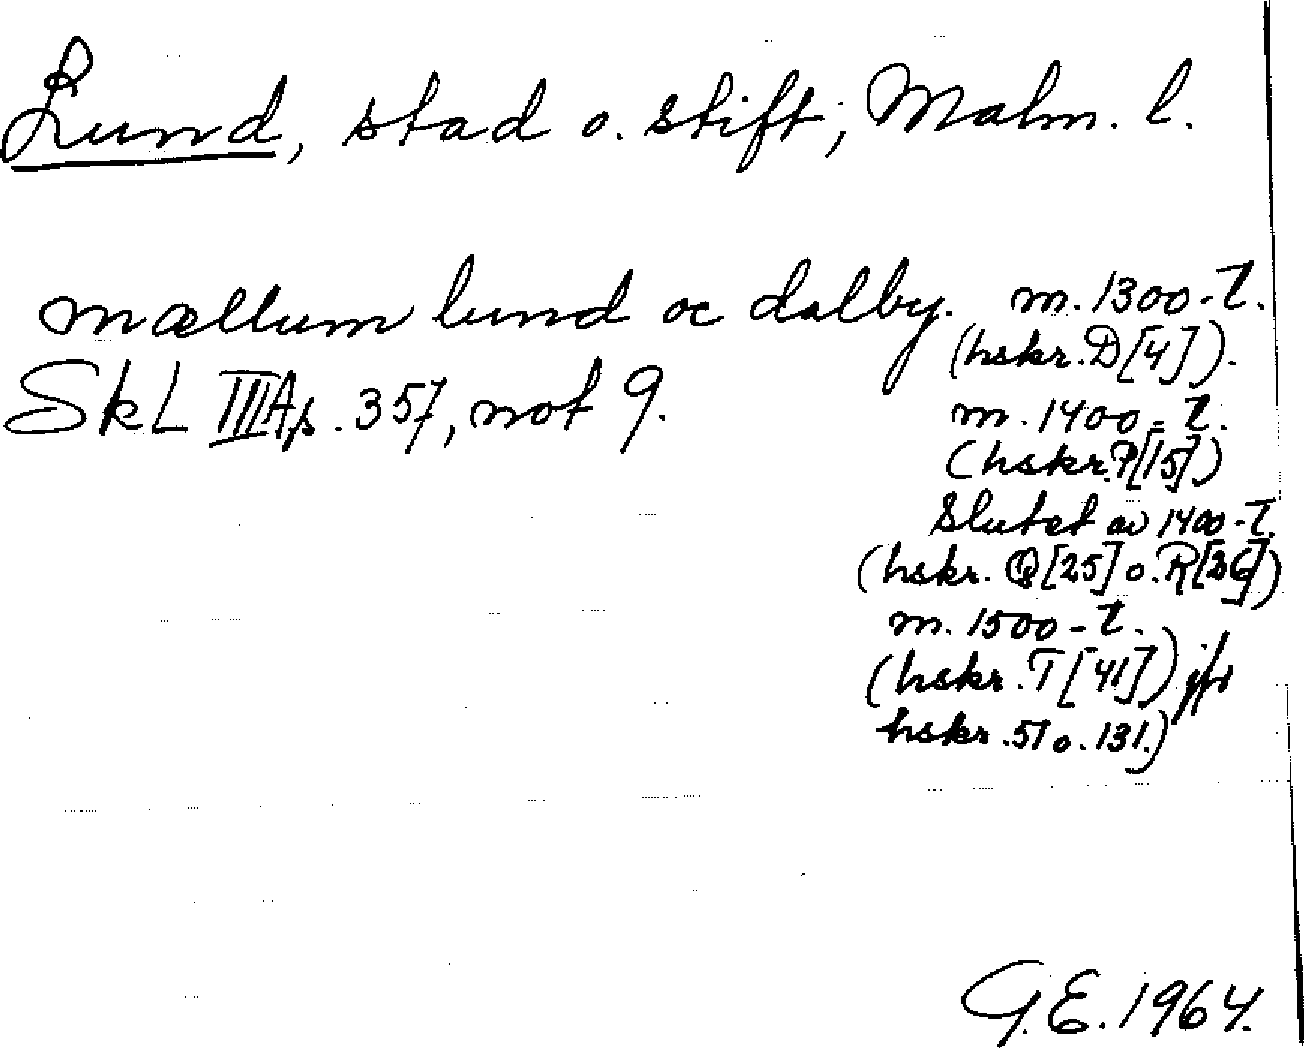 Lund, stad o. stift, Malm. l.
mællum lund oc dalby. m. 1300-t.
(hskr. D[4]).
SkL IIIA p. 357, not 9.
m. 1400-t.
(hskr. P[15])
Slutet av 1400-t.
(hskr. Q[25] o. R[36])
m. 1500-t.
(hskr. T[41]) jfr
hskr. 51 o. 131.)
G.E. 1964.